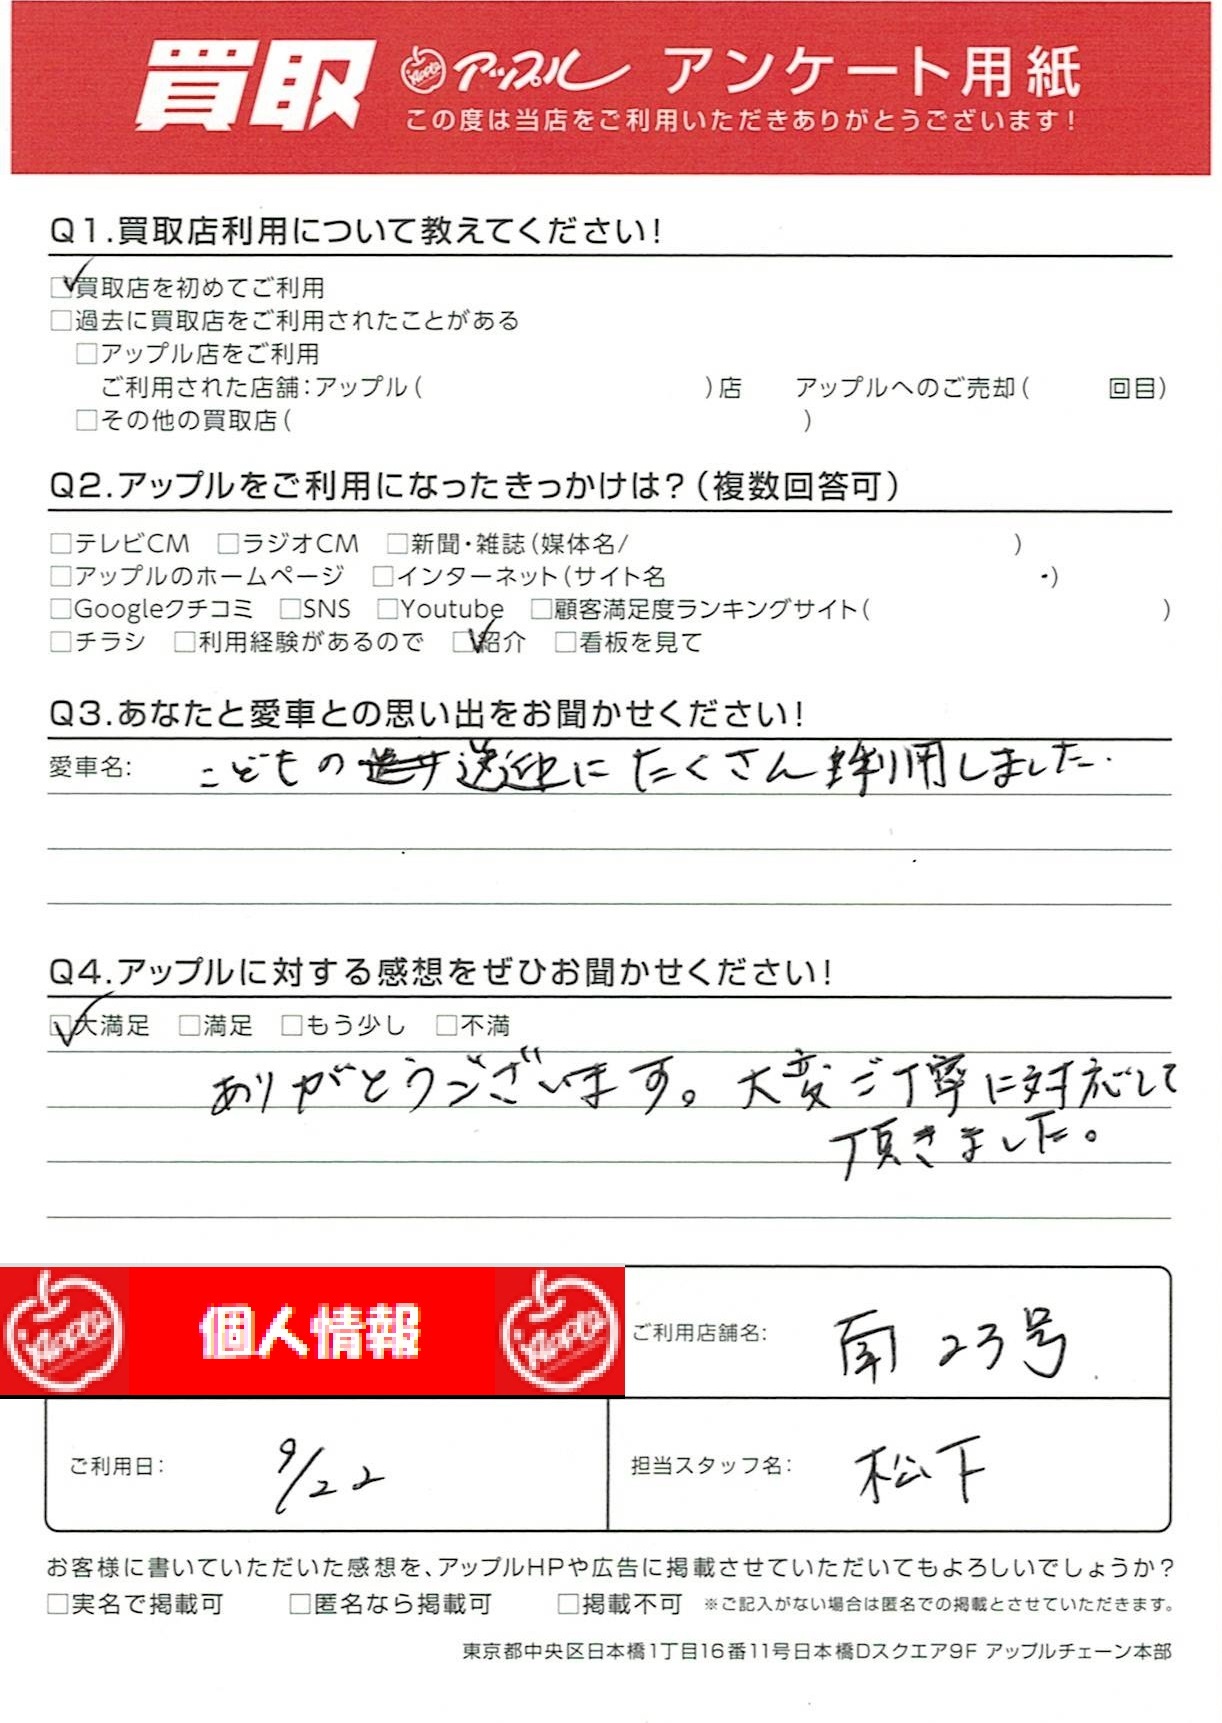 買取 Apple アップル アンケート用紙
この度は当店をご利用いただきありがとうございます!
Q1.買取店利用について教えてください!
□買取店を初めてご利用
□過去に買取店をご利用されたことがある
□アップル店をご利用
ご利用された店舗:アップル( )店 アップルへのご売却( 回目)
□その他の買取店( )
Q2.アップルをご利用になったきっかけは?(複数回答可)
□テレビCM □ラジオCM □新聞・雑誌(媒体名/ )
□アップルのホームページ □インターネット(サイト名 )
□Googleクチコミ □SNS □Youtube □顧客満足度ランキングサイト( )
□チラシ □利用経験があるので □紹介 □看板を見て
Q3.あなたと愛車との思い出をお聞かせください!
愛車名: こどもの送迎にたくさん利用しました.
Q4.アップルに対する感想をぜひお聞かせください!
□大満足 □満足 □もう少し □不満
ありがとうございます。大変ご丁寧に対応して
頂きました。
Apple 個人情報 Apple
ご利用店舗名: 南23号
ご利用日: 9/22
担当スタッフ名: 松下
お客様に書いていただいた感想を、アップルHPや広告に掲載させていただいてもよろしいでしょうか?
□実名で掲載可 □匿名なら掲載可 □掲載不可 ※ご記入がない場合は匿名での掲載とさせていただきます。
東京都中央区日本橋1丁目16番11号日本橋Dスクエア9F アップルチェーン本部